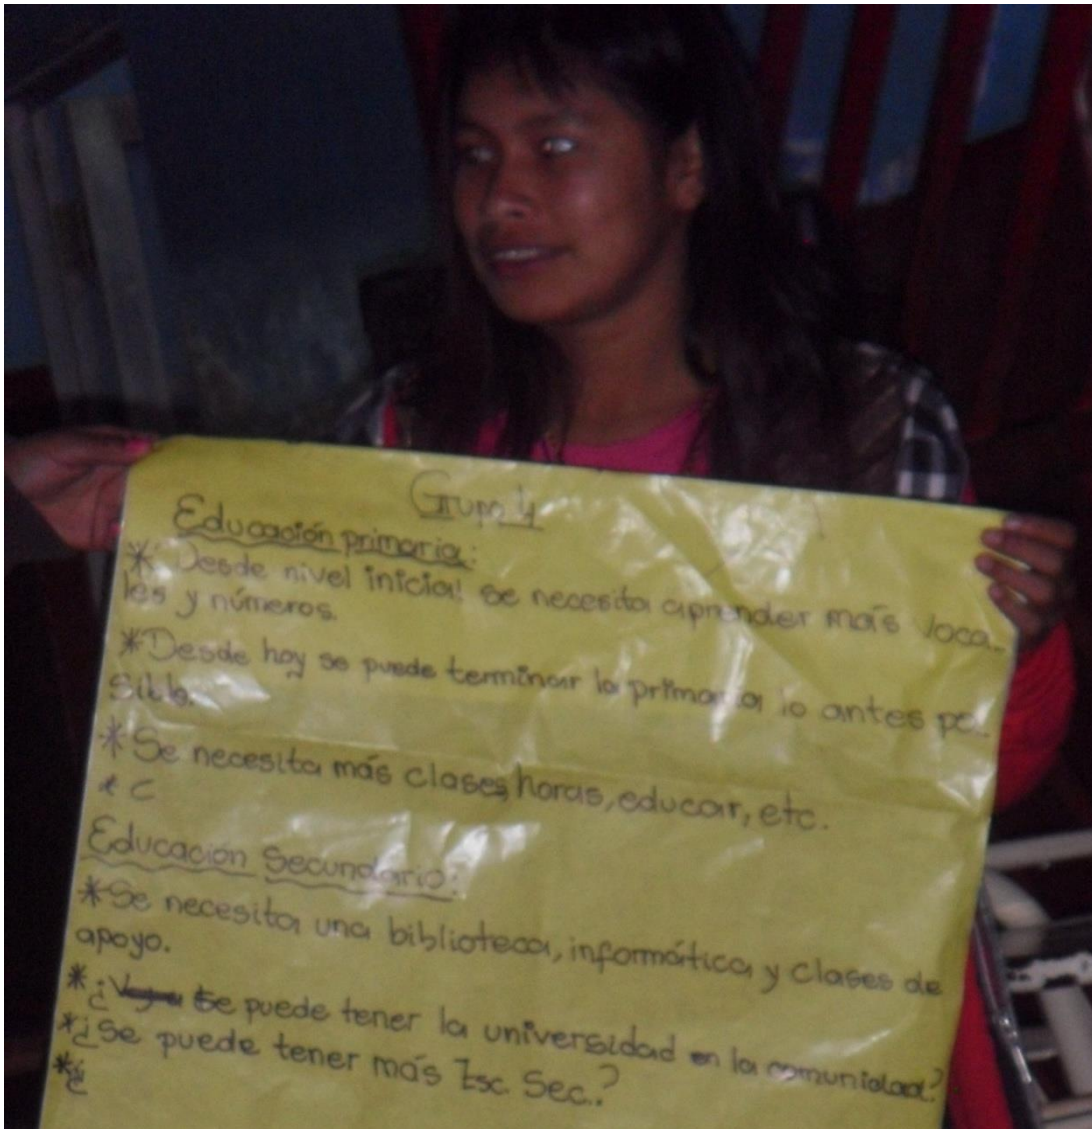 Grupo 4
Educación primaria:
* Desde nivel inicial se necesita aprender más voca_
les y números.
* Desde hoy se puede terminar la primaria lo antes po_
sible.
* Se necesita más clases, horas, educar, etc.
* C
Educación Secundaria:
* Se necesita una biblioteca, informática y clases de
apoyo.
* ¿ Se puede tener la universidad en la comunidad?
* ¿Se puede tener más Esc. Sec.?
* ¿